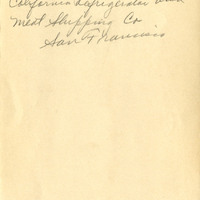 California Refrigerator
Meat Shipping Co
San Francisco